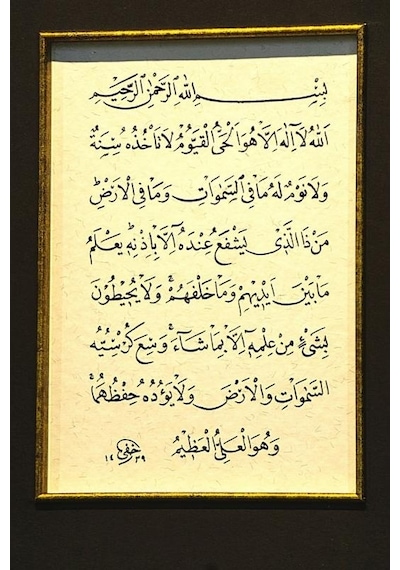 بِسْمِ اللهِ الرَّحْمٰنِ الرَّحِيمِ
اَللهُ لَآ اِلٰهَ اِلَّا هُوَ اَلْحَيُّ الْقَيُّومُ لَا تَأْخُذُهُ سِنَةٌ
وَلَا نَوْمٌ لَهُ مَا فِي السَّمٰوَاتِ وَمَا فِي الْاَرْضِ
مَنْ ذَا الَّذِي يَشْفَعُ عِنْدَهُ اِلَّا بِاِذْنِهِ يَعْلَمُ
مَا بَيْنَ اَيْدِيهِمْ وَمَا خَلْفَهُمْ وَلَا يُحِيطُونَ
بِشَيْءٍ مِنْ عِلْمِهِ اِلَّا بِمَا شَاءَ وَسِعَ كُرْسِيُّهُ
السَّمٰوَاتِ وَالْاَرْضَ وَلَا يَؤُدُهُ حِفْظُهُمَا
وَهُوَ الْعَلِيُّ الْعَظِيمُ
١٤٣٩